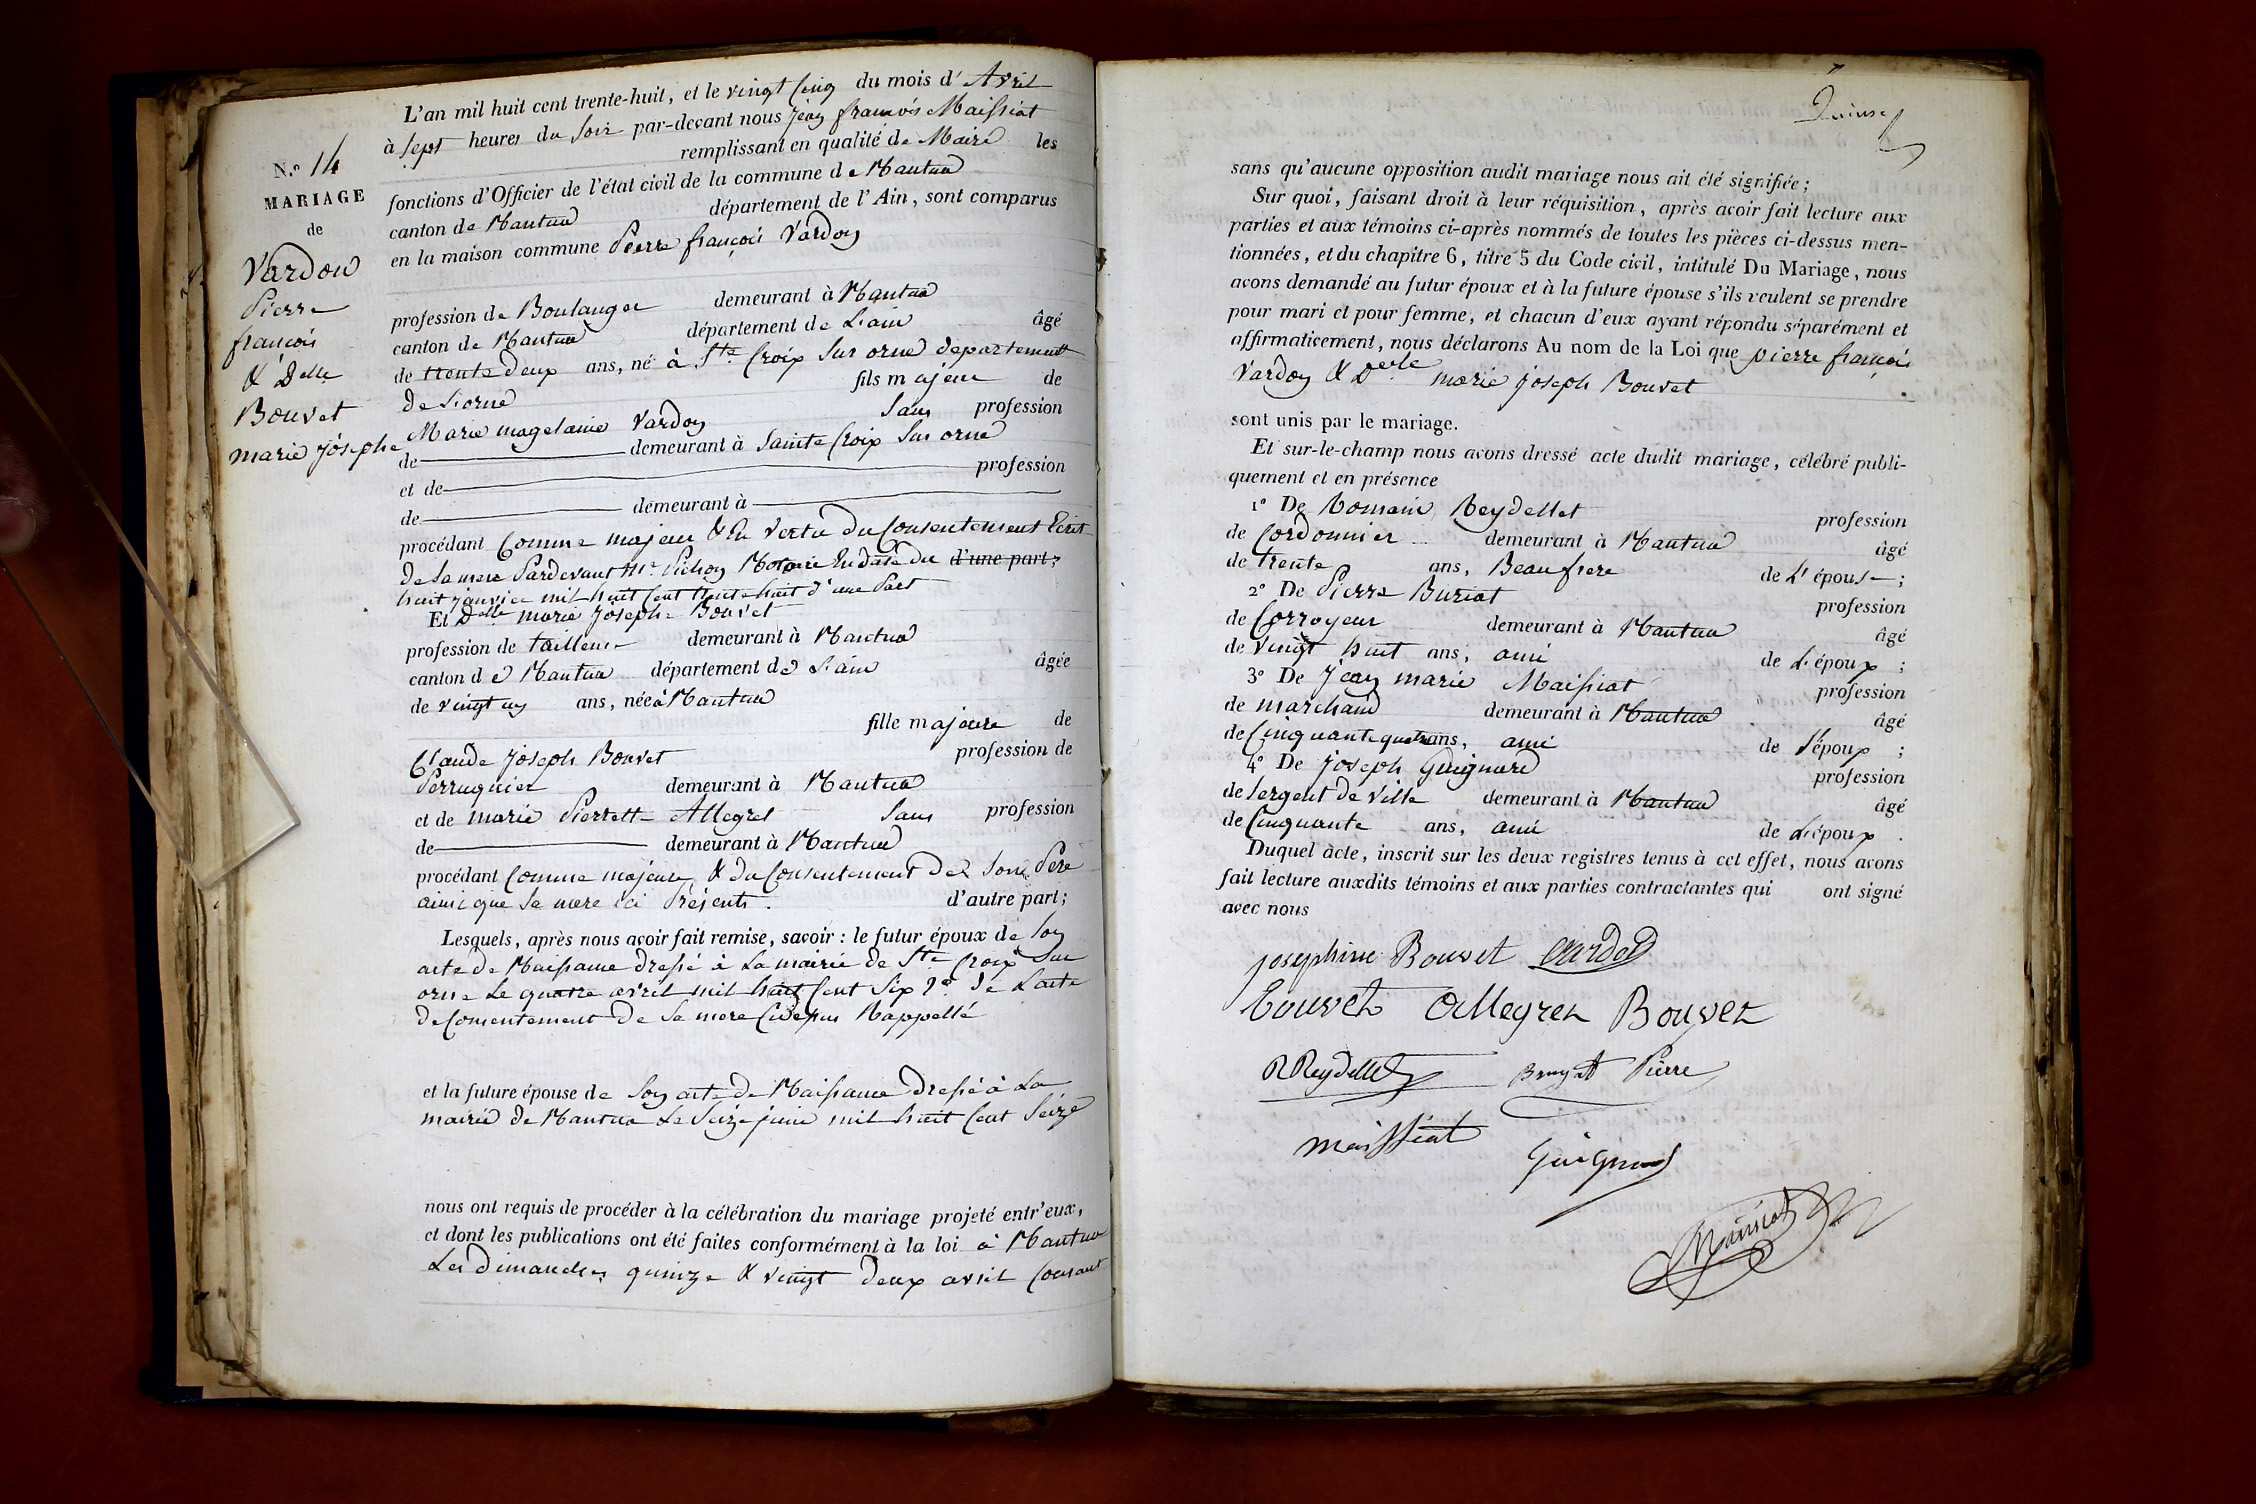 L'an mil huit cent trente-huit, et le vingt Cinq du mois d'Avril
à Sept heures du Soir par-devant nous jean francois Maissiat
remplissant en qualité de Maire les
N.º 14
MARIAGE
de
Vardon
Pierre
françois
& Delle
Bouvet
marie josephe
fonctions d'Officier de l'état civil de la commune de Nantua
canton de Nantua département de l'Ain, sont comparus
en la maison commune Pierre françois Vardon
profession de Boulanger demeurant à Nantua
canton de Nantua département de L'ain âgé
de trente deux ans, né à Ste Croix Sur orne departement
de L'orne fils majeur de
Marie magelaine Vardon Sans profession
de demeurant à Sainte Croix Sur orne
et de profession
de demeurant à
procédant Comme majeur & En Vertu du Consentement Ecrit
de Sa mere Pardevant Me Pichon Notaire En date du d'une part;
huit janvier mil huit Cent trente huit d'une Part
Et Delle marie joseph Bouvet
profession de tailleuse demeurant à Nantua
canton de Nantua département de L'ain âgée
de vingt un ans, née à Nantua
fille majeure de
Claude joseph Bouvet profession de
Perruquier demeurant à Nantua
et de marie Pierrette Allegret Sans profession
de demeurant à Nantua
procédant Comme majeure & du Consentement de Son Pere
ainsi que Sa mere ici Présents. d'autre part;
Lesquels, après nous avoir fait remise, savoir : le futur époux de Son
acte de Naissance dressé à La mairie de Ste Croix Sur
orne Le quatre avril mil huit Cent Six 2º de L'acte
de Consentement de Sa mere Cidessus Rappellé
et la future épouse de Son acte de Naissance dressé à La
mairie de Nantua Le Seize juin mil huit Cent Seize
nous ont requis de procéder à la célébration du mariage projeté entr'eux,
et dont les publications ont été faites conformément à la loi à Nantua
Les dimanches quinze & vingt deux avril Courant
7
Quinze
sans qu'aucune opposition audit mariage nous ait été signifiée;
Sur quoi, faisant droit à leur réquisition, après avoir fait lecture aux
parties et aux témoins ci-après nommés de toutes les pièces ci-dessus men-
tionnées, et du chapitre 6, titre 5 du Code civil, intitulé Du Mariage, nous
avons demandé au futur époux et à la future épouse s'ils veulent se prendre
pour mari et pour femme, et chacun d'eux ayant répondu séparément et
affirmativement, nous déclarons Au nom de la Loi que pierre françois
Vardon & Delle marie joseph Bouvet
sont unis par le mariage.
Et sur-le-champ nous avons dressé acte dudit mariage, célébré publi-
quement et en présence
1º De Romain Reydellet profession
de Cordonnier demeurant à Nantua âgé
de trente ans, Beau frere de L'épouse;
2º De Pierre Buriat profession
de Corroyeur demeurant à Nantua âgé
de vingt huit ans, ami de L'époux;
3º De jean marie Maissiat profession
de marchand demeurant à Nantua âgé
de Cinquante quatre ans, ami de l'époux;
4º De joseph Guignard profession
de Sergent de Ville demeurant à Nantua âgé
de Cinquante ans, ami de L'époux.
Duquel acte, inscrit sur les deux registres tenus à cet effet, nous avons
fait lecture auxdits témoins et aux parties contractantes qui ont signé
avec nous
josephine Bouvet Vardon
bouvet Allegret Bouvet
R Reydellet Bruyat Pierre
Maissiat
Guignard
Maissiat